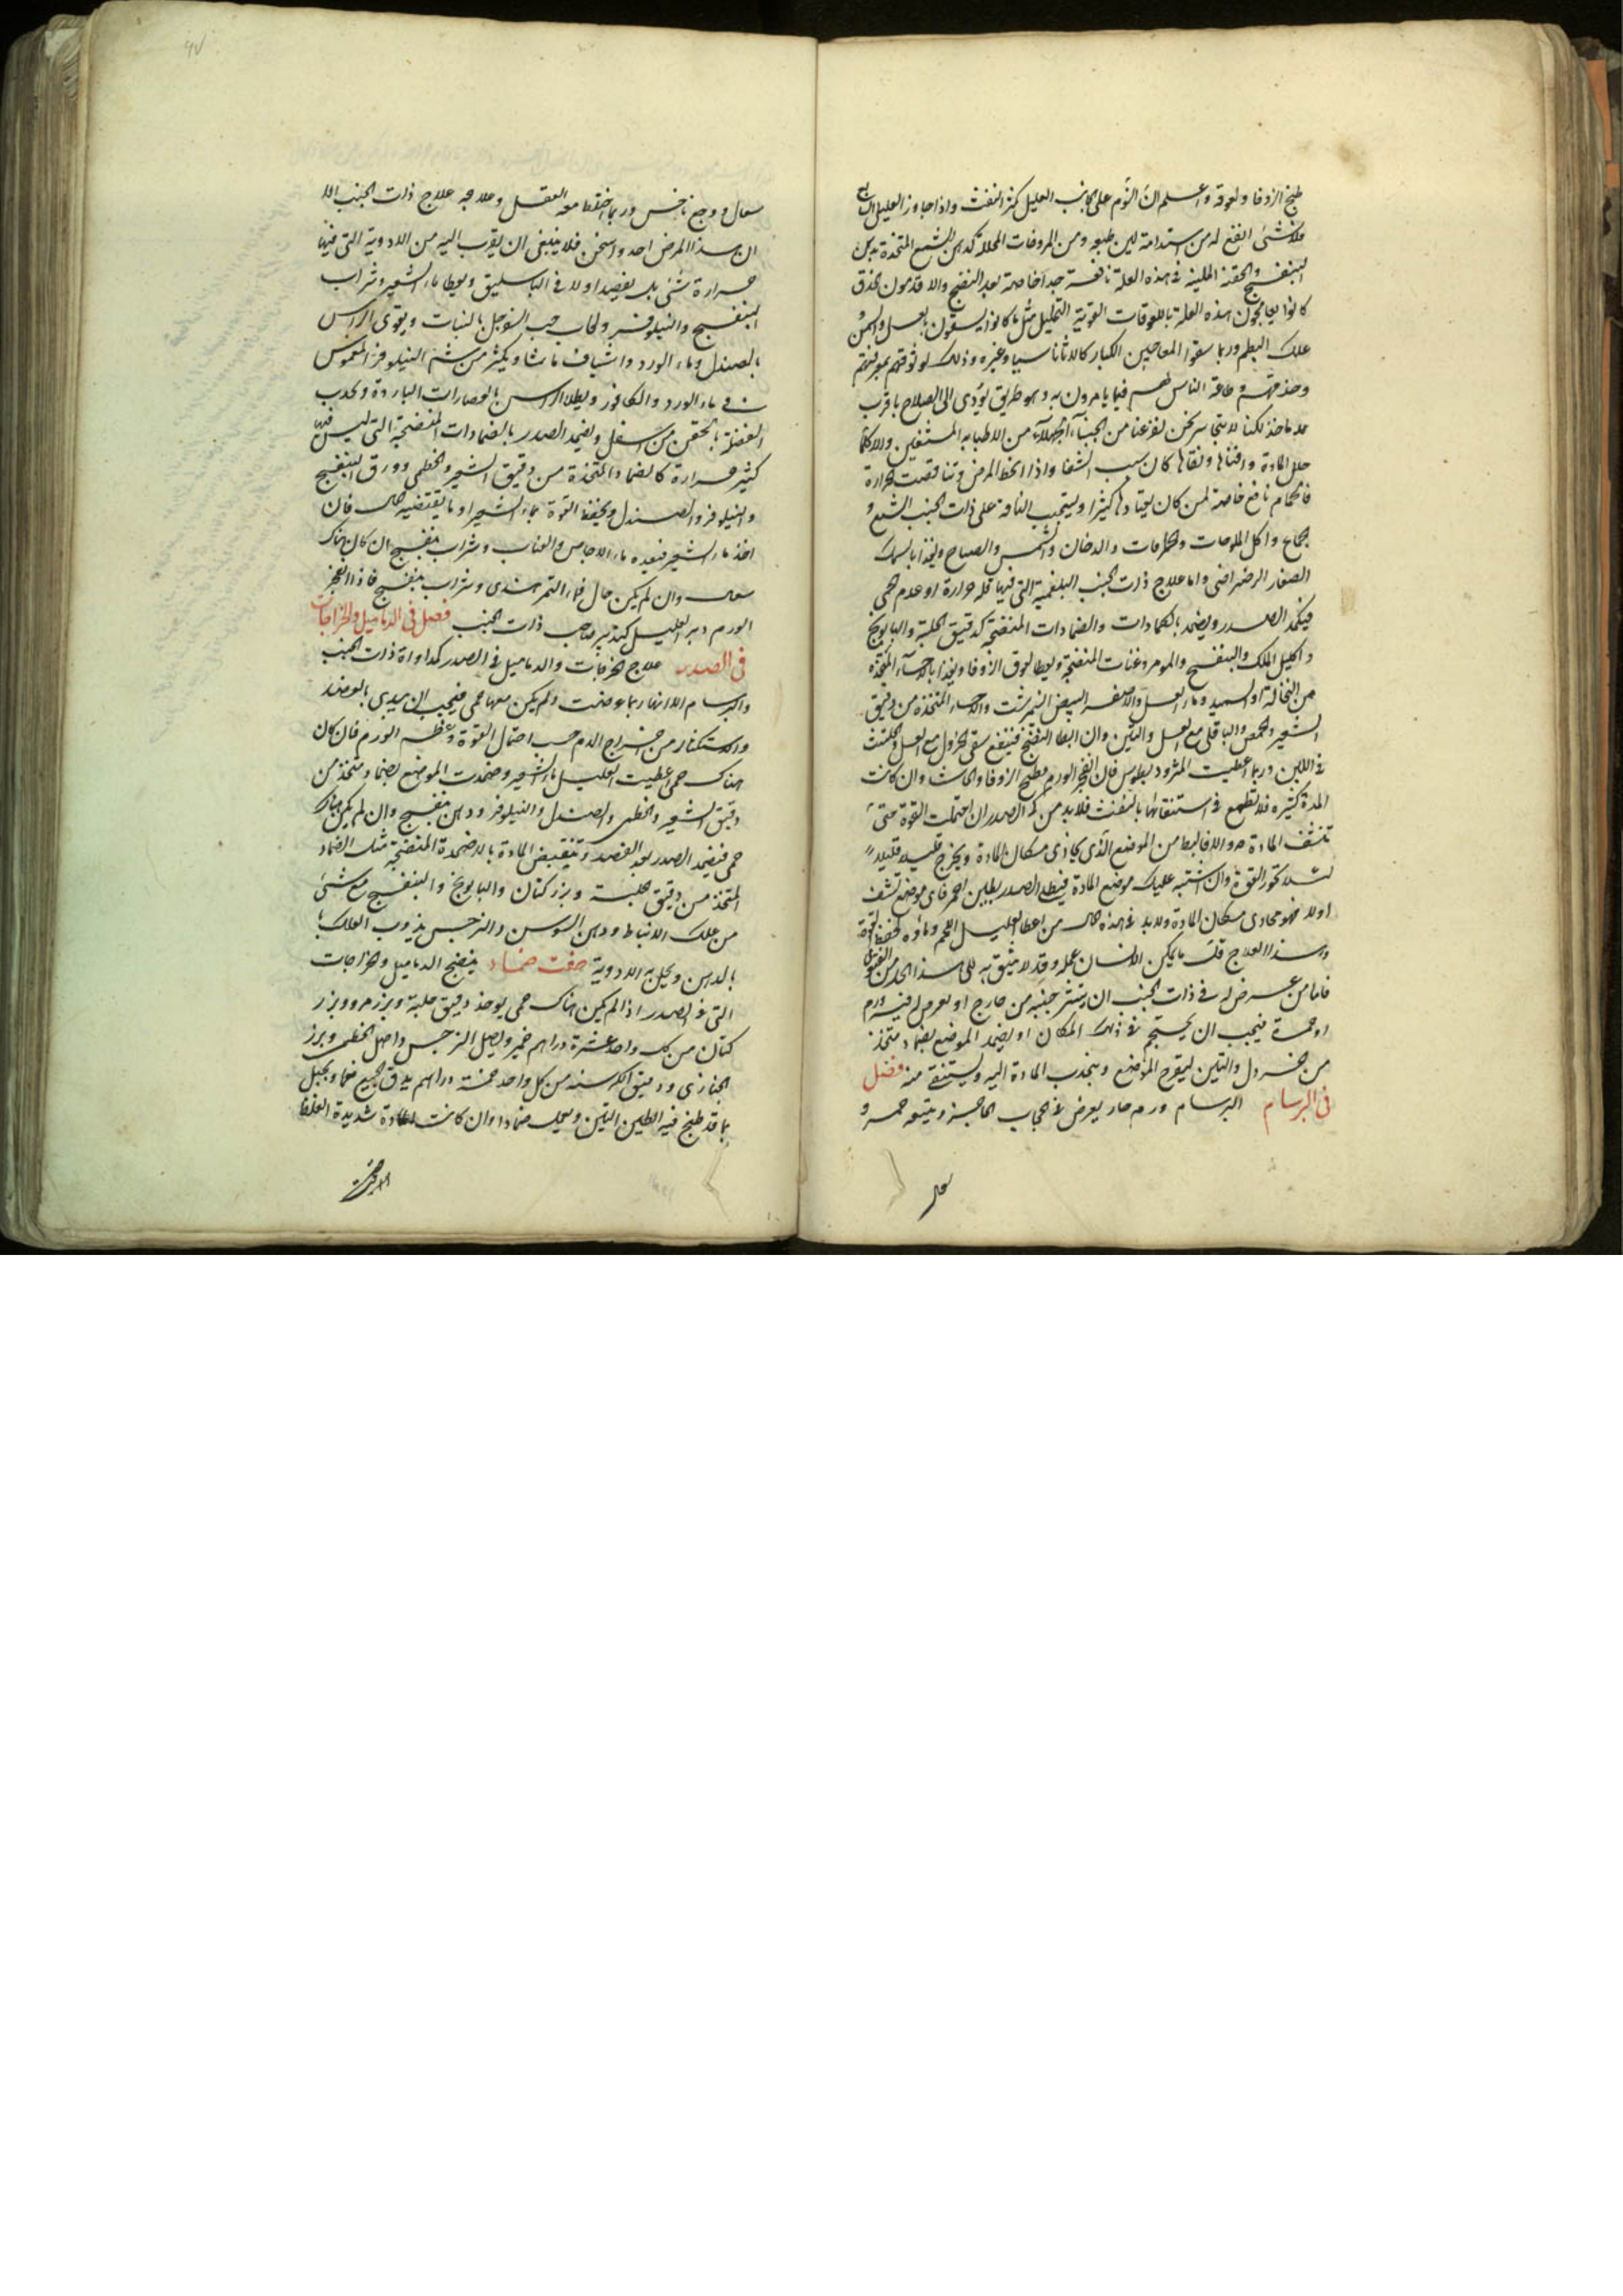 طبخ الزوفا ولعوقه واعلم ان النوم على جانب العليل يكثر النفث واذا جاوز العليل
فلا شئ انفع له من استدامة لين طبعه ومن المروخات المحللة كدهن الشمع المتخذة بدهن
البنفسج والحقنة اللينة فى هذه العلة نافعة جدا خاصة بعد النضج والاقدمون
كانوا يعالجون هذه العلة باللعوقات القوية التحليل مثل ما كانوا يسقون العسل والسمن و
علك البطم وربما سقوا المعاجين الكبار كالاثاناسيا وغيره وذلك لوثوقهم بمعرفتهم
وحذقهم وطاعة الناس لهم فيما يأمرون به وهو طريق يؤدى الى الصلاح باقرب
مأخذ لكنا لا نتجاسر نحن لفزعنا من الجهلاء من الاطباء
حلل المادة وافناها ونقاها كان سبب الشفا واذا انحط المرض وتناقصت الحرارة
فالحمام نافع خاصة لمن كان يعتاده كثيرا ويتجنب الناقه على ذات الجنب الشبع و
الجماع واكل الملوحات والدخان والشمس والصياح ويغذا بالسمك
الصغار الرضراضى واما علاج ذات الجنب البلغمية التى فيها قلة حرارة او عدم حمى
فيكمد الصدر ويضمد بالكمادات والضمادات المنضجة كدقيق الحلبة والبابونج
واكليل الملك والبنفسج والمنضجة ويعطا لعوق الزوفا ويغذا بالاحساء المتخذة
من النخالة او السميد وماء العسل والاصفر البيض النمرشت والاحساء المتخذة من دقيق
الشعير والحمص والباقلى مع العسل والتين وان ابطا النضج فينفع سقى الخردل مع العسل والحلتيت
فى اللبن وربما اعطيت المثروديطوس فان انفجر الورم فطبخ الزوفا والحاشا وان كانت
المدة كثيرة فلا تطمع فى استنقائها بالنفث فلا بد من كى الصدر ان احتملت القوة حتى
تنشف المادة والا فالبط من الموضع الذى يحاذى مكان المادة ويخرج قليلا قليلا
لئلا تخور القوة وان اشتبه عليك موضع المادة فيطلا الصدر بطين احمر فاى موضع نشف
اولا فهو محاذى مكان المادة ولا بد فى هذه الحال من اعطا العليل اللحم وماؤه لحفظ القوة
وهذا العلاج قل ما يمكن الانسان عمله وقد لا يثق به
فاما من عرض له فى ذات الجنب ان ينتثر جنبه من خارج او يعرض فيه ورم
او حمرة فيجب ان يحتجم فى ذلك المكان او يضمد الموضع بضماد متخذ
من الخردل والتين ليتقرح الموضع وينجذب المادة اليه ويستنقى منه فصل
فى البرسام البرسام ورم حار يعرض فى الحجاب الحاجز ويتبعه حمى و
سعال
سعال ووجع ناخس وربما اختلط معه العقل وعلاجه علاج ذات الجنب الا
ان هذا المرض احد واسخن فلا ينبغى ان يقرب اليه من الادوية التى فيها
حرارة شئ بل يفصد اولا فى الباسليق ويعطا ماء الشعير وشراب
البنفسج والنيلوفر ولعاب حب السفرجل بالنبات ويقوى الراس
بالصندل وماء الورد واشياف ماميثا ويكثر من شم النيلوفر المغموس
فى ماء الورد والكافور ويطلا الراس بالعصارات الباردة ويجذب
الفضلة بالحقن من اسفل ويضمد الصدر بالضمادات المنضجة التى ليس فيها
كثير حرارة كالضماد المتخذة من دقيق الشعير والخطمى وورق البنفسج
والنيلوفر والصندل ويحفظ القوة بماء الشعير او ما يقتضيه الحال فان
اخذ ماء الشعير فبعده ماء الاجاص والعناب وشراب بنفسج ان كان هناك
سعال وان لم يكن سعال فماء التمر هندى وشراب بنفسج فاذا انفجر
الورم دبر العليل كتدبير صاحب ذات الجنب فصل فى الدماميل والخراجات
فى الصدر علاج الخراجات والدماميل فى الصدر كمداواة ذات الجنب
والبرسام الا انها ربما عرضت ولم يكن معها حمى فيجب ان يبدى بالفصد
والاستكثار من اخراج الدم حسب احتمال القوة وعظم الورم فان كان
هناك حمى اعطيت العليل ماء الشعير وضمدت الموضع بضماد متخذ من
دقيق الشعير والخطمى والصندل والنيلوفر ودهن بنفسج وان لم يكن هناك
حمى فيضمد الصدر بعد الفصد وتنقيص المادة بالاضمدة المنضجة مثل الضماد
المتخذ من دقيق حلبة وبزر كتان والبابونج والبنفسج مع شئ
من علك الانباط ودهن السوسن والنرجس يذوب العلك
بالدهن ويحل به الادوية صفة ضماد ينضج الدماميل والخراجات
التى فى الصدر اذا لم يكن هناك حمى يوخذ دقيق حلبة وبزر مرو وبزر
كتان من كل واحد عشرة دراهم خمير واصل النرجس واصل الخطمى وبزر
الخبازى ودقيق الكرسنه من كل واحد خمسة دراهم يدق الجميع ناعما ويجبل
بما قد طبخ فيه التين ويعمل ضمادا وان كانت المادة شديدة الغلظ